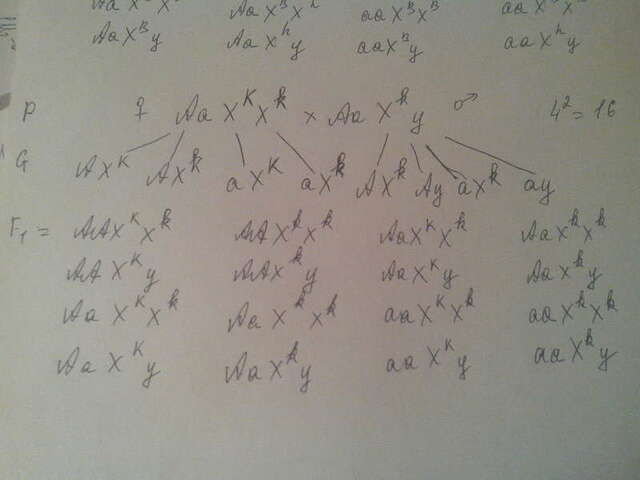 Aa X^B y Aa X^h y aa X^B y aa X^h y
P ♀ Aa X^K X^k × Aa X^k y ♂ 4² = 16
G A X^K A X^k a X^K a X^k A X^k Ay a X^k ay
F₁ = AA X^K X^k AA X^k X^k Aa X^K X^k Aa X^k X^k
AA X^K y AA X^k y Aa X^K y Aa X^k y
Aa X^K X^k Aa X^k X^k aa X^K X^k aa X^k X^k
Aa X^K y Aa X^k y aa X^K y aa X^k y